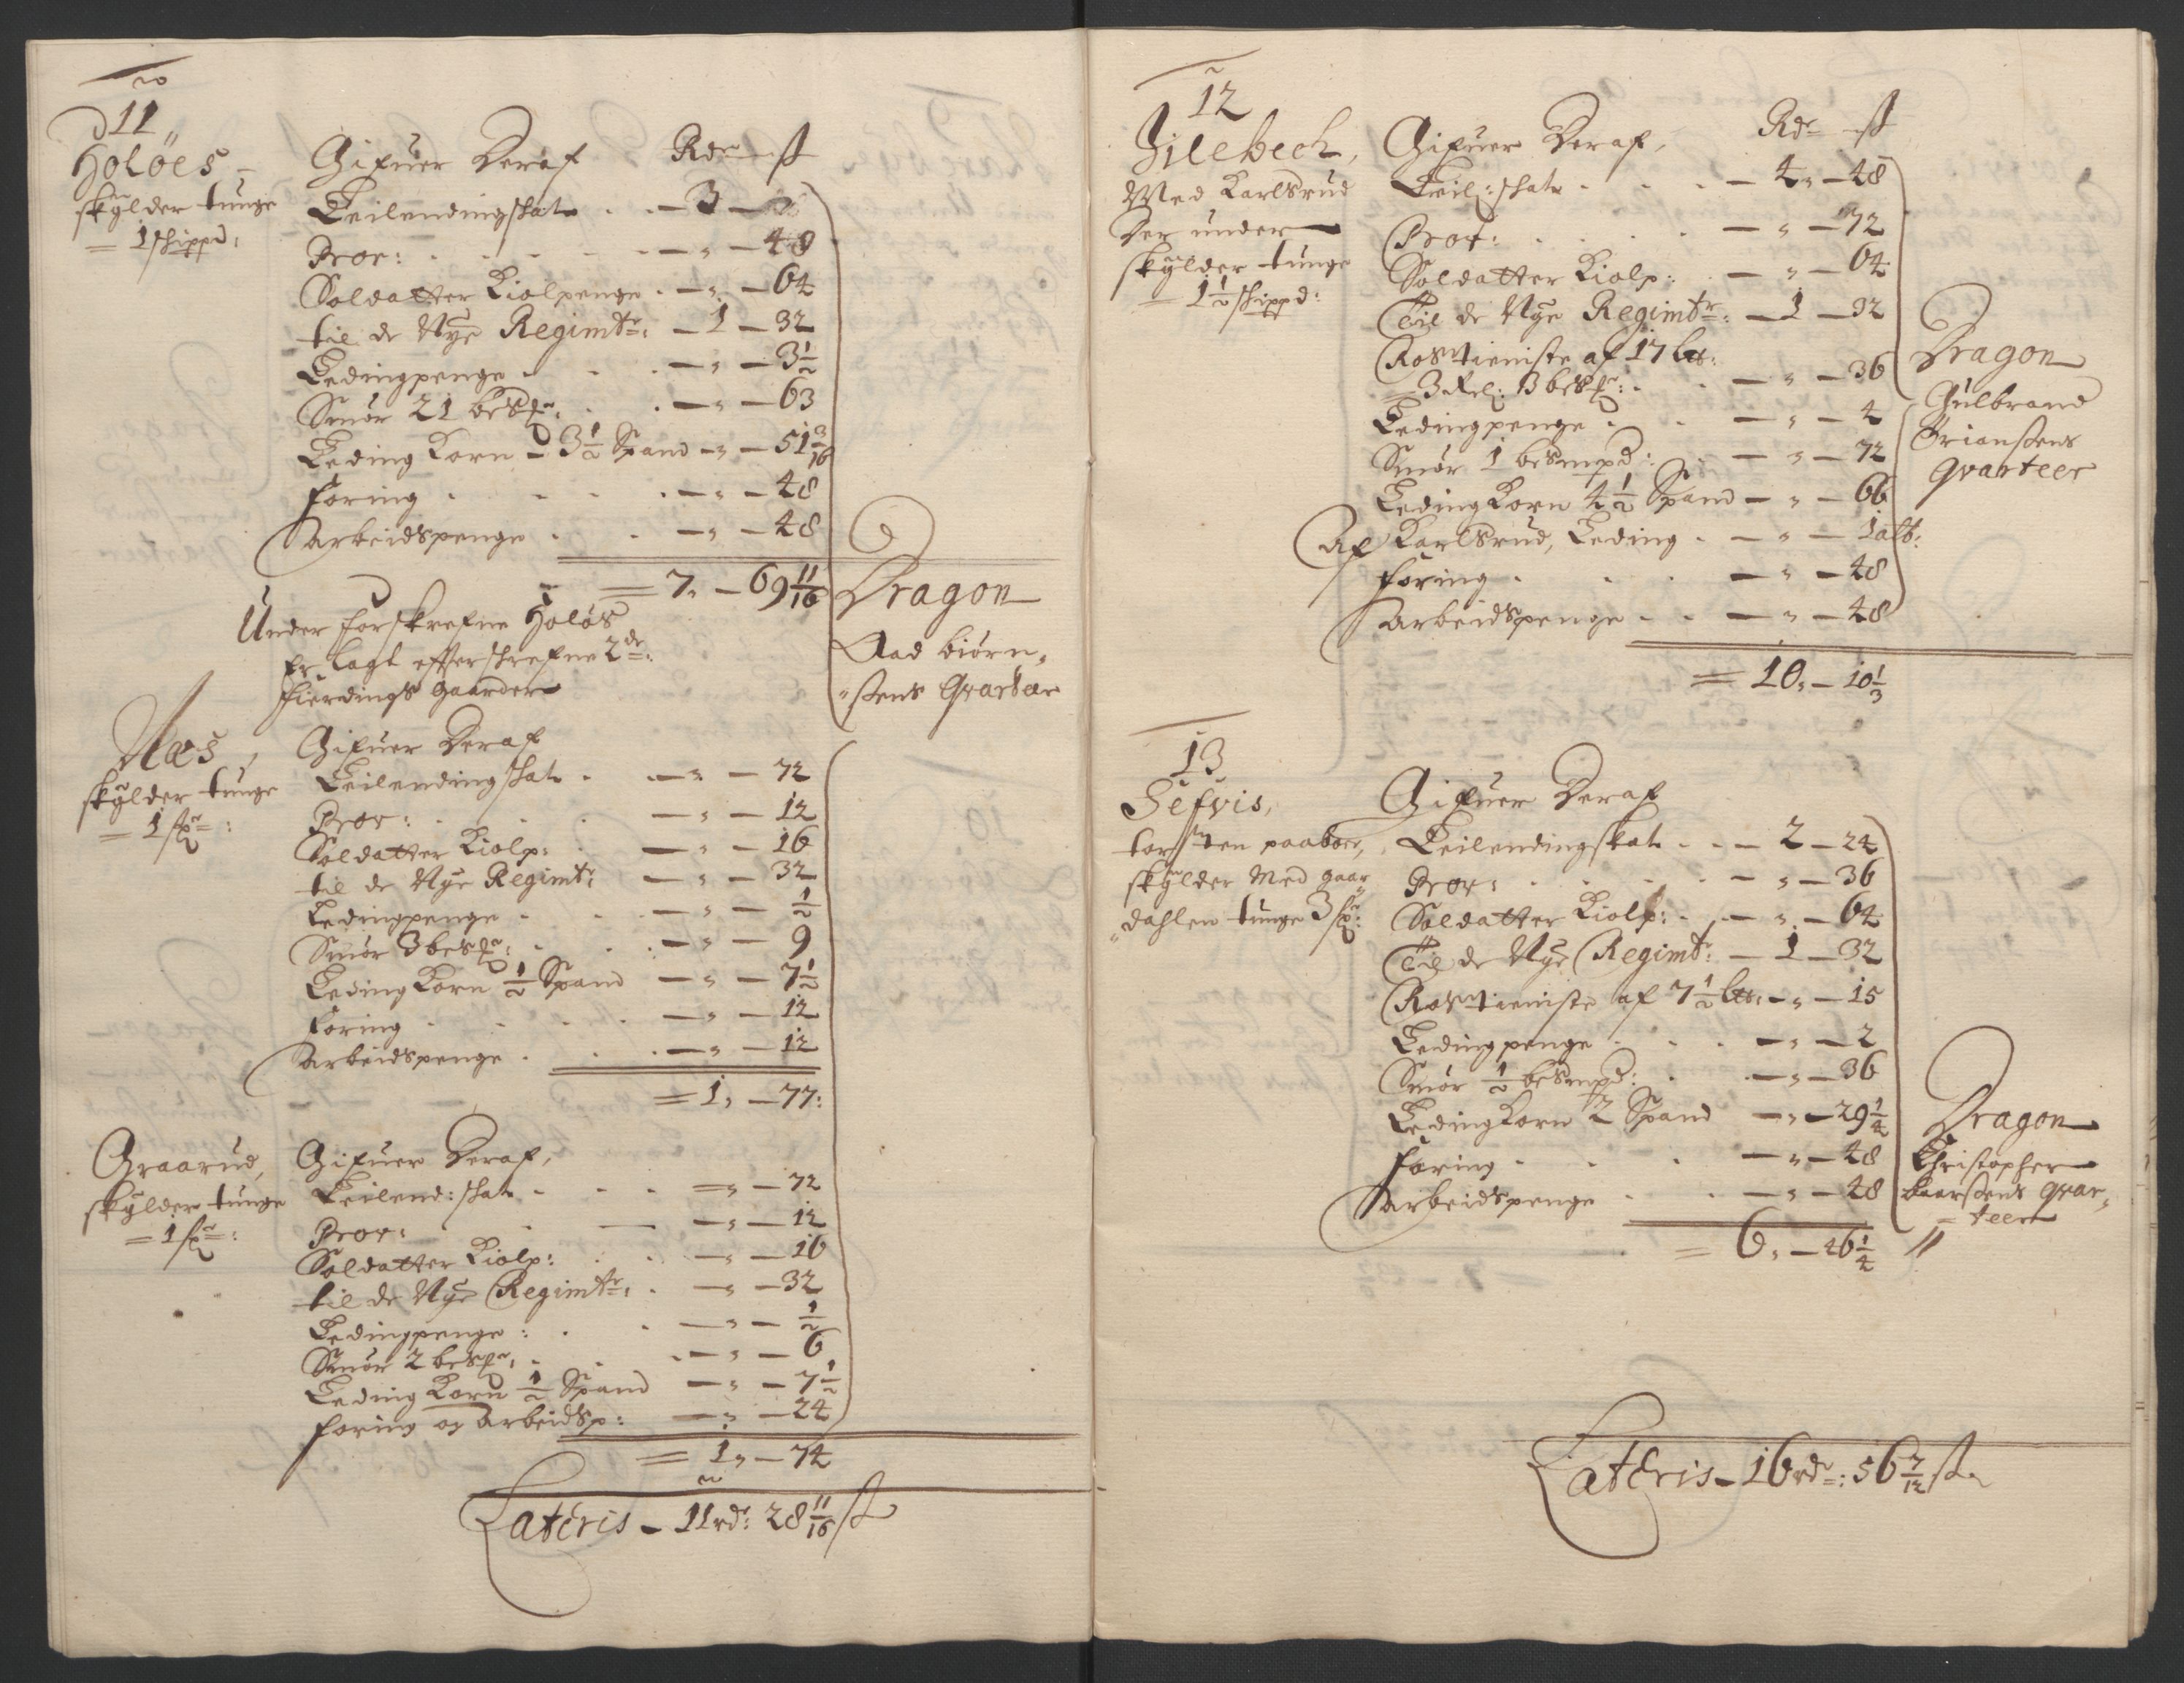 11
Holöes
skÿlder tunge
= 1 schippd:
Gifuer Deraf Rdr ß
Leilendingschatt . . — 3 —
Prov: . . . — " — 48
Soldatter Kiolpenge . — " — 64
til de Nÿe Regimtr: — 1 — 32
Ledingpenge . . . — " — 3½
Smör 21 besfr: . — " — 63
Leding Korn — 3½ Spand — " — 51 3/16
foring . . . . — " — 48
Arbeidspenge . . — " — 48
= 7 " — 69 11/16
Dragon
Aad biörn„
„sens Qvarteer
Under forskrefne Holös
Er lagt efterschrefne 2de:
fierdings gaarder
Næs,
skÿlder tunge
= 1 fr:
Gifuer Deraf
Leilendingschatt . . — " — 72
Prov: . . . — " — 12
Soldatter Kiolp: . — " — 16
til de Nÿe Regimtr: — " — 32
Ledingpenge . . . — " — ½
Smör 3 besfr: . . — " — 9
Leding Korn ½ Spand — " — 7½
foring . . . . — " — 12
Arbeidspenge . . . — " — 12
= 1 " — 77:
Graarud,
skÿlder tunge
= 1 fr:
Gifuer Deraf,
Leilend: schatt . . . = " — 72
Prov: . . — — " — 12
Soldatter Kiolp: . . — " — 16
til de Nÿe Regimtr: . — " — 32
Ledingpenge : . . — " — ½
Smör 2 besfr: . . — " — 6
Leding Korn ½ Spand — " — 7½
foring og Arbeidsp: — " — 24
= 1 " — 74
Lateris — 11 rdr: 28 11/16 ß
12
Zilebech,
Med Karlsrud
Der under
skÿlder tunge
= 1½ schippd:
Gifuer Deraf, Rdr ß
Leil: schatt . . . — 4 " — 48
Prov: . . . . — " — 72
Soldatter Kiolp: . — " — 64
Til de Nÿe Regimtr: — 1 — 32
Rostieniste af 17 ltt:
= 3 fl: 3 besfr: . . — " — 36
Ledingpenge . . — " — 4
Smör 1 besmpd: . — " — 72
Leding Korn 4½ Spand — " — 66
Af Karlsrud, Leding . — " — 1 alb:
foring . . . — " — 48
Arbeidspenge . . — " — 48
= 10 " — 10⅓
Dragon
Gulbrand
Örianßens
Qvarteer
13
Sefvis,
torsten paaboer,
skÿlder Med gaar„
„dahlen tunge 3 fr:
Gifuer Deraf
Leilendingskatt . . — 2 — 24
Prov: . . . . — " — 36
Soldatter Kiolp: . . — " — 64
Til de Nÿe Regimtr: — 1 — 32
Rostieniste af 7½ ltt: — " — 15
Ledingpenge . . . — " — 2
Smör ½ besmpd: . — " — 36
Leding Korn 2 Spand — " — 29¼
foring . . . — " — 48
Arbeidspenge . . — " — 48
= 6 " — 46¼
Dragon
Christopher
Laarßens Qvar„
= teer
Lateris — 16 rdr: 56 7/12 ß